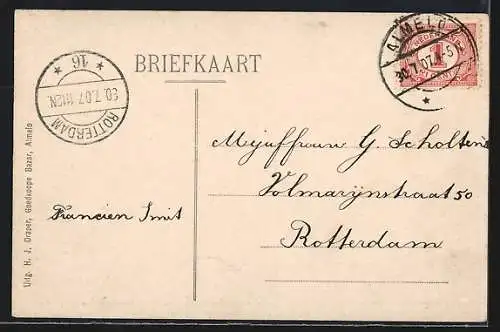 BRIEFKAART
ALMELO
30.7.07. 4-5
NEDERLAND
1
ROTTERDAM
30.7.07
* 16 *
Mejuffrouw G. Scholtens
Volmarijnstraat 50
Rotterdam
Francien Smit
Uitg. H. J. Draper, Goedkoope Bazar, Almelo